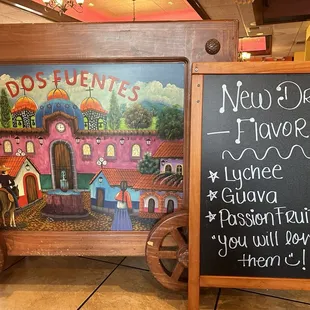 DOS FUENTES
New
— Flavor
☆ Lychee
☆ Guava
☆ Passion Fruit
"you will
them ☺!